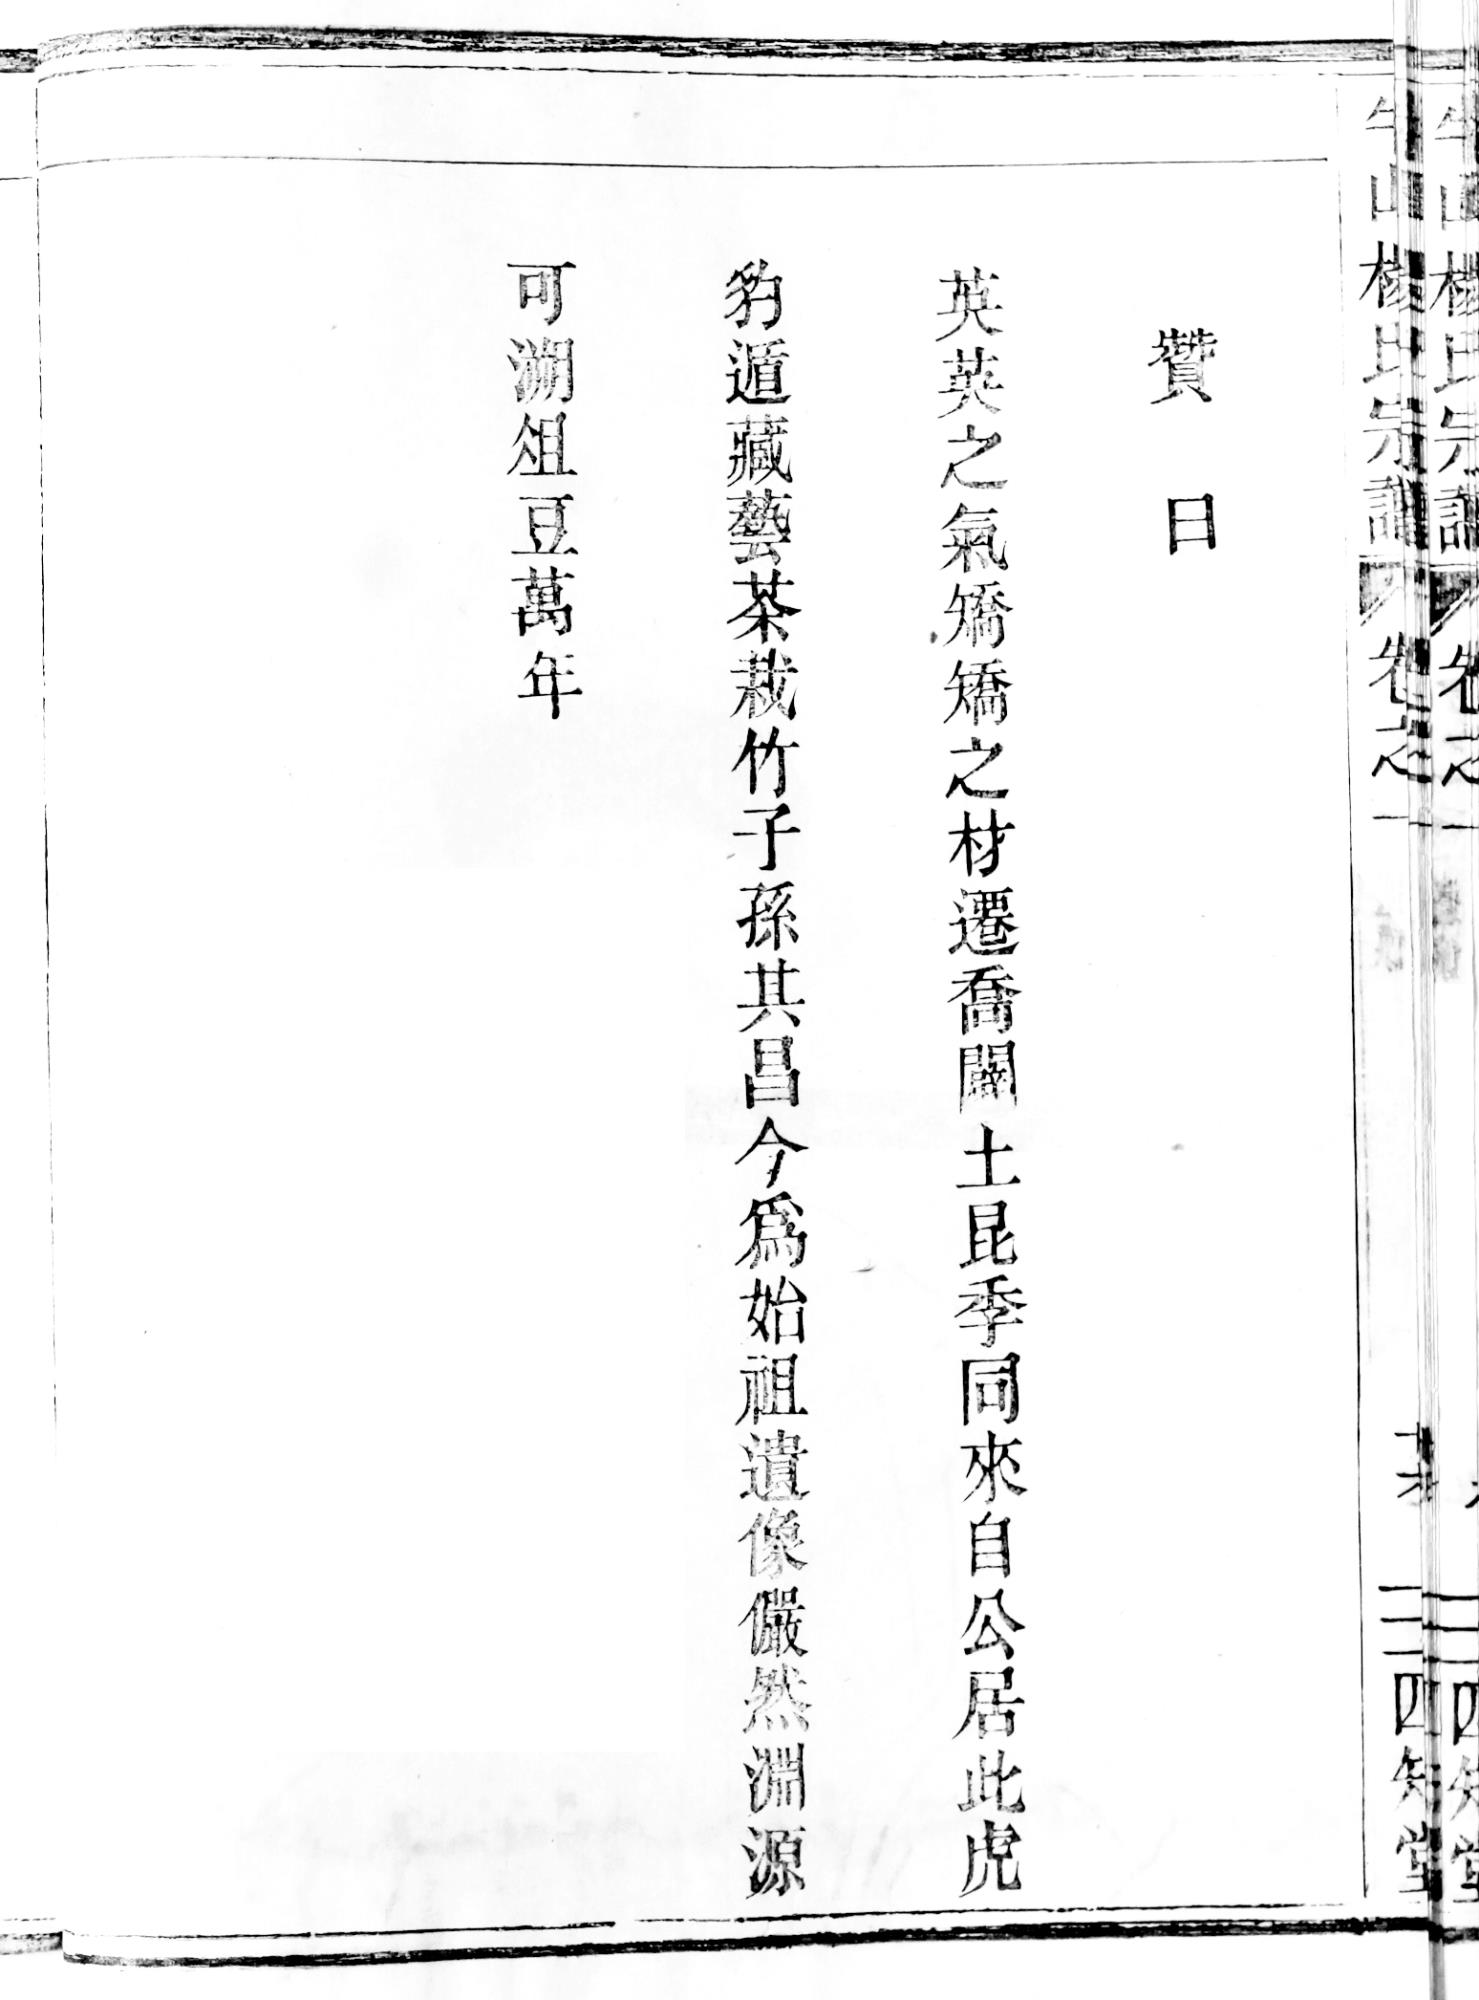 牛山楊氏宗譜 卷之一 四知堂
贊曰
英英之氣矯矯之材遷喬闢土昆季同來自公居此虎
豹遁藏藝茶栽竹子孫其昌今爲始祖遺像儼然淵源
可溯俎豆萬年